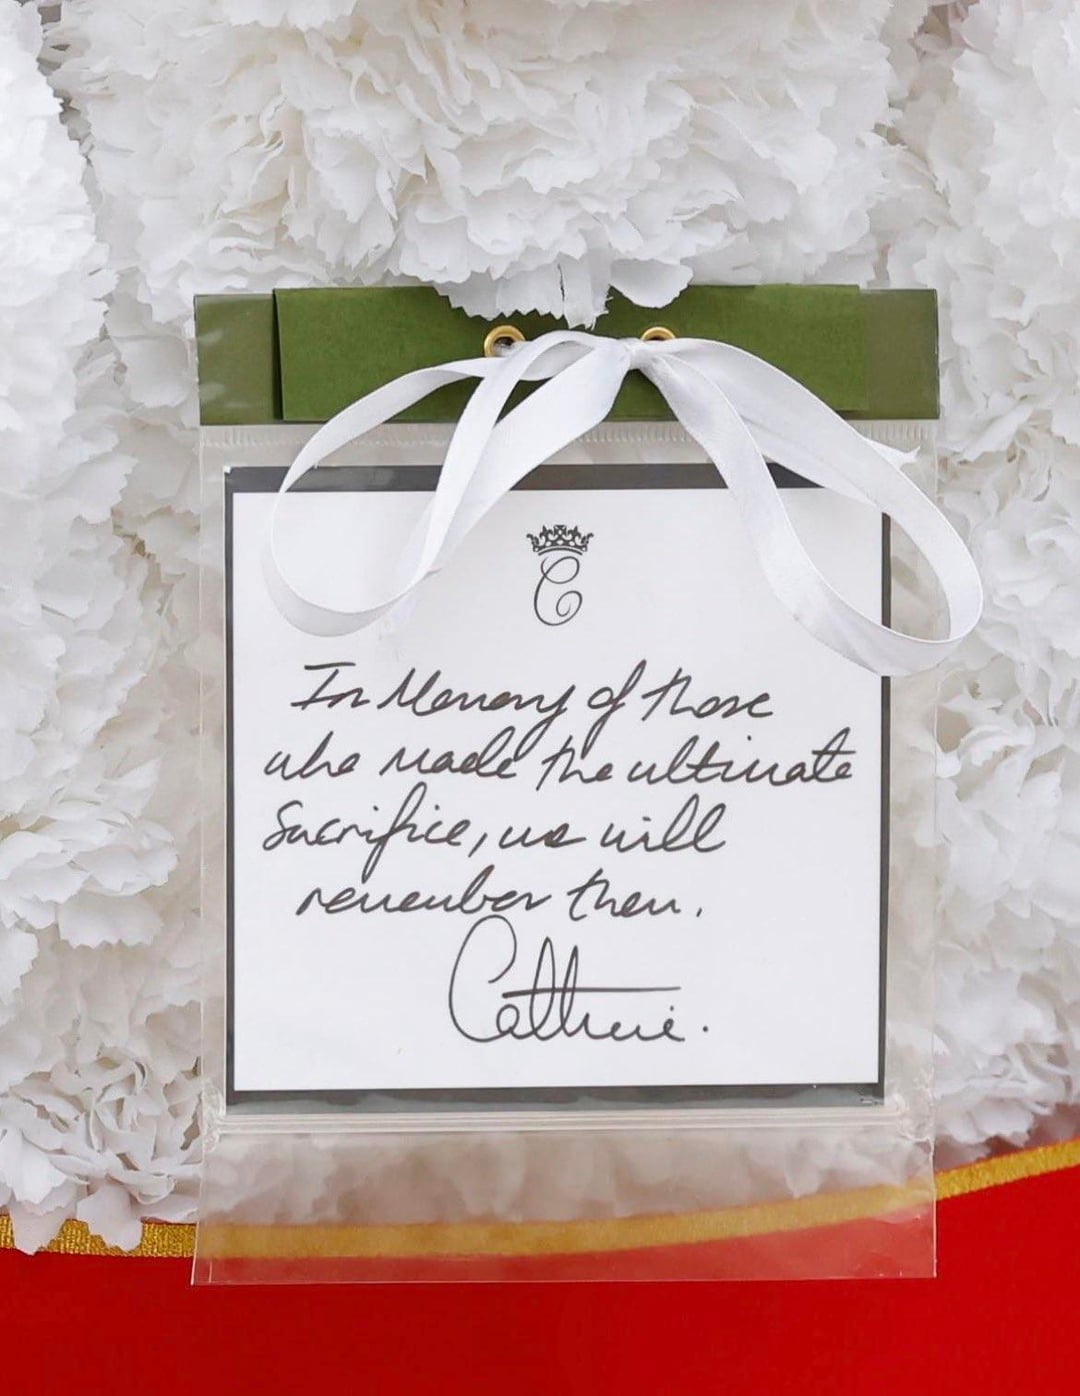 C
In Memory of those
who made the ultimate
Sacrifice, we will
remember them.
Catherine.